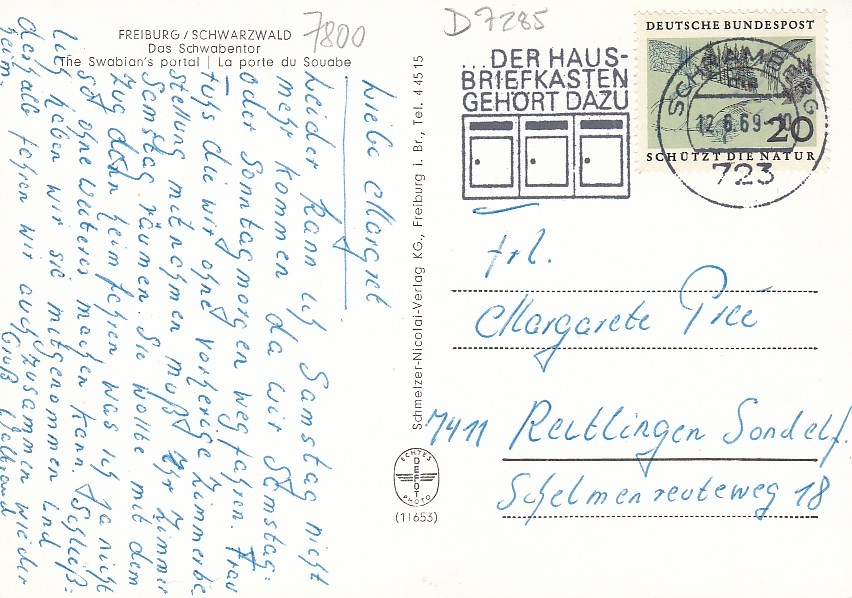 FREIBURG / SCHWARZWALD
Das Schwabentor
The Swabian's portal | La porte du Souabe
7800
D 7285
...DER HAUS-
BRIEFKASTEN
GEHÖRT DAZU
DEUTSCHE BUNDESPOST
20
SCHÜTZT DIE NATUR
SCHRAMBERG
12.6.69-10
723
Liebe Margret
Leider kann ich Samstag nicht
mehr kommen da wir Samstag-
oder Sonntagmorgen weg fahren. Frau
die wir ohne vorherige Zimmerbe
stellung mitnehmen mußt Ihr Zimmer
Samstag räumen. Sie wollte mit dem
Zug dann heim fahren was ich ja nicht
so ohne weiteres machen kann. Schließ-
lich haben wir sie mitgenommen und
deshalb fahren wir auch zusammen wieder
heim. Gruß
Schmelzer-Nicolai-Verlag KG., Freiburg i. Br., Tel. 4 45 15
ECHTES
DEFOT
PHOTO
(11653)
Frl.
Margarete Preé
7411 Reutlingen Sondelf.
Schelmenreuteweg 18